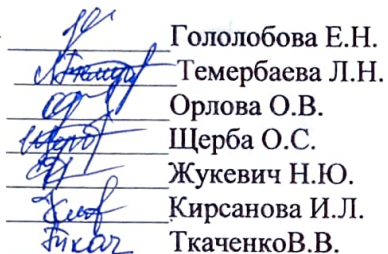 Гололобова Е.Н.
Темербаева Л.Н.
Орлова О.В.
Щерба О.С.
Жукевич Н.Ю.
Кирсанова И.Л.
ТкаченкоВ.В.